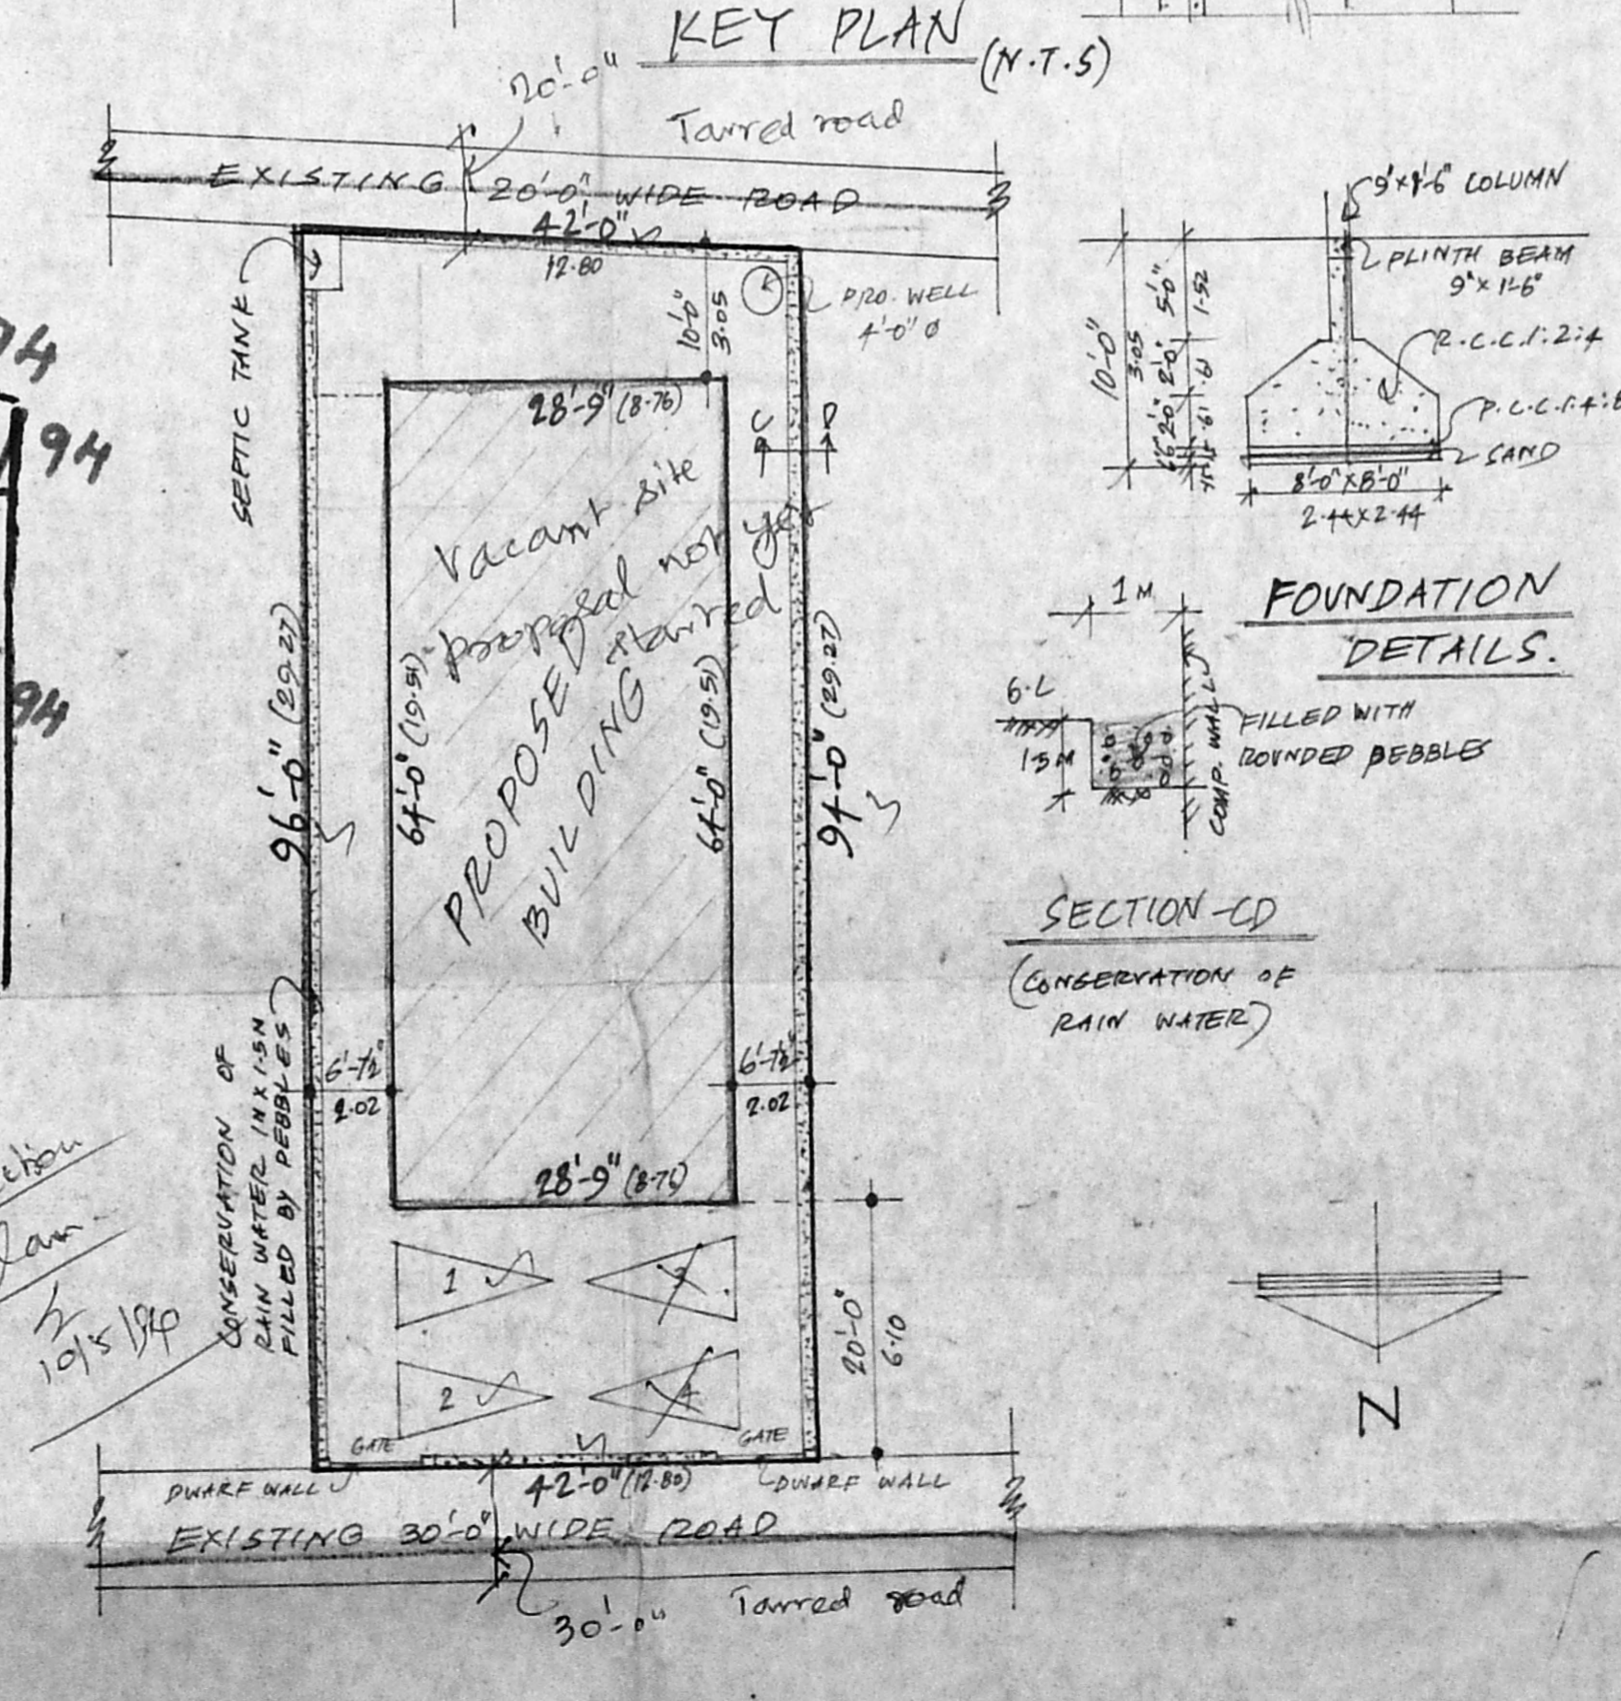 KEY PLAN
(N.T.S)
20'-0"
Tarred road
EXISTING 20'-0" WIDE ROAD
42'-0"
12.80
SEPTIC TANK
PRO. WELL
4'-0" Ø
10'-0"
3.05
28'-9" (8.76)
C D
94
94
Vacant site
proposal not yet
started
PROPOSED
BUILDING
64'-0" (19.51)
64'-0" (19.51)
96'-0" (29.27)
94'-0" (29.27)
6'-7½"
2.02
6'-7½"
2.02
28'-9" (8.76)
CONSERVATION OF
RAIN WATER 1M X 1.5M
FILLED BY PEBBLES
1
3
2
4
20'-0"
6.10
GATE
GATE
DWARF WALL
42'-0" (12.80)
DWARF WALL
EXISTING 30'-0" WIDE ROAD
30'-0"
Tarred road
9"x1'-6" COLUMN
PLINTH BEAM
9"x1'-6"
R.C.C.1:2:4
P.C.C.1:4:8
SAND
10'-0"
3.05
5'-0"
1.52
2'-0"
.61
2'-0"
.61
8'-0"X8'-0"
2.44X2.44
FOUNDATION
DETAILS.
1M
G.L
1.5M
COMP. WALL
FILLED WITH
ROUNDED PEBBLES
SECTION-CD
(CONSERVATION OF
RAIN WATER)
N